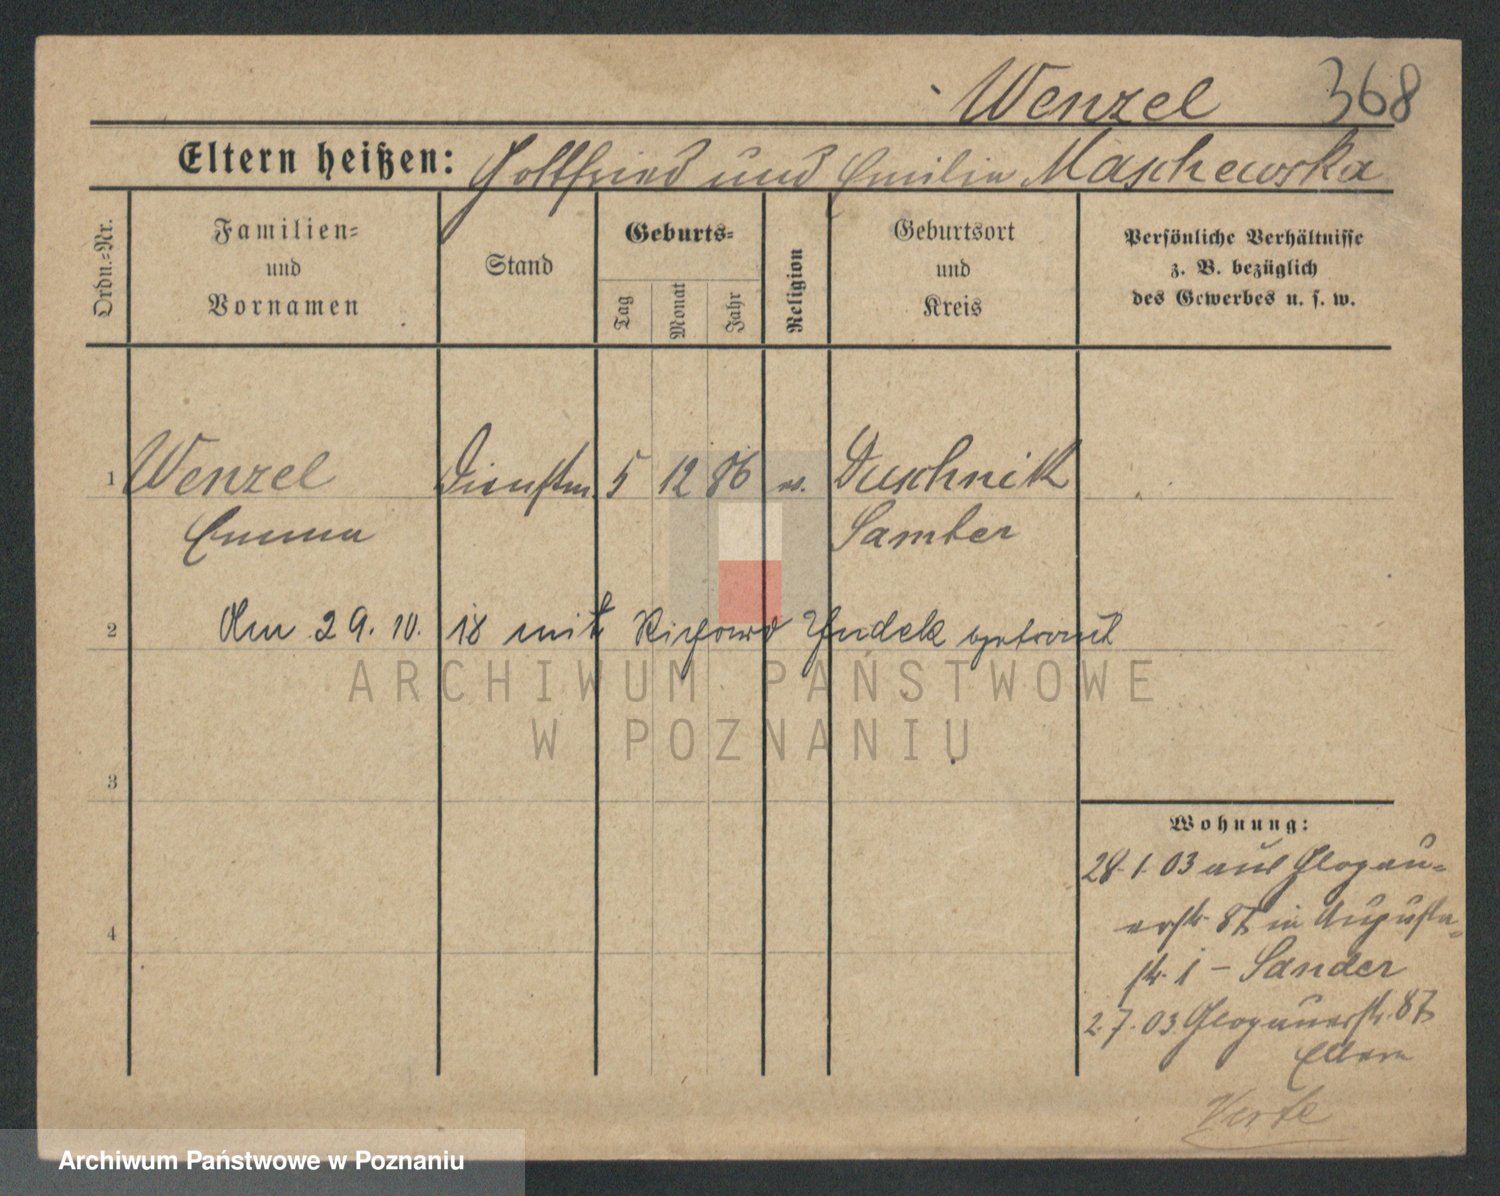 Wenzel 368
Eltern heißen: Gottfried und Emilie Maschewska
Ordn.-Nr.
Familien-
und
Vornamen
Stand
Geburts-
Tag
Monat
Jahr
Religion
Geburtsort
und
Kreis
Persönliche Verhältnisse
z. B. bezüglich
des Gewerbes u. s. w.
1 Wenzel Dienstm. 5 12 86 ev. Duschnik
Emma Samter
2 Am 29. 10. 18 mit Richard getraut
3
4
Wohnung:
28. 1. 03 aus Glogau-
erstr. 87 in Augusta-
str. 1 - Sander
2. 7. 03 Glogauerstr. 87
Eltern
Verte
ARCHIWUM PAŃSTWOWE
W POZNANIU
Archiwum Państwowe w Poznaniu